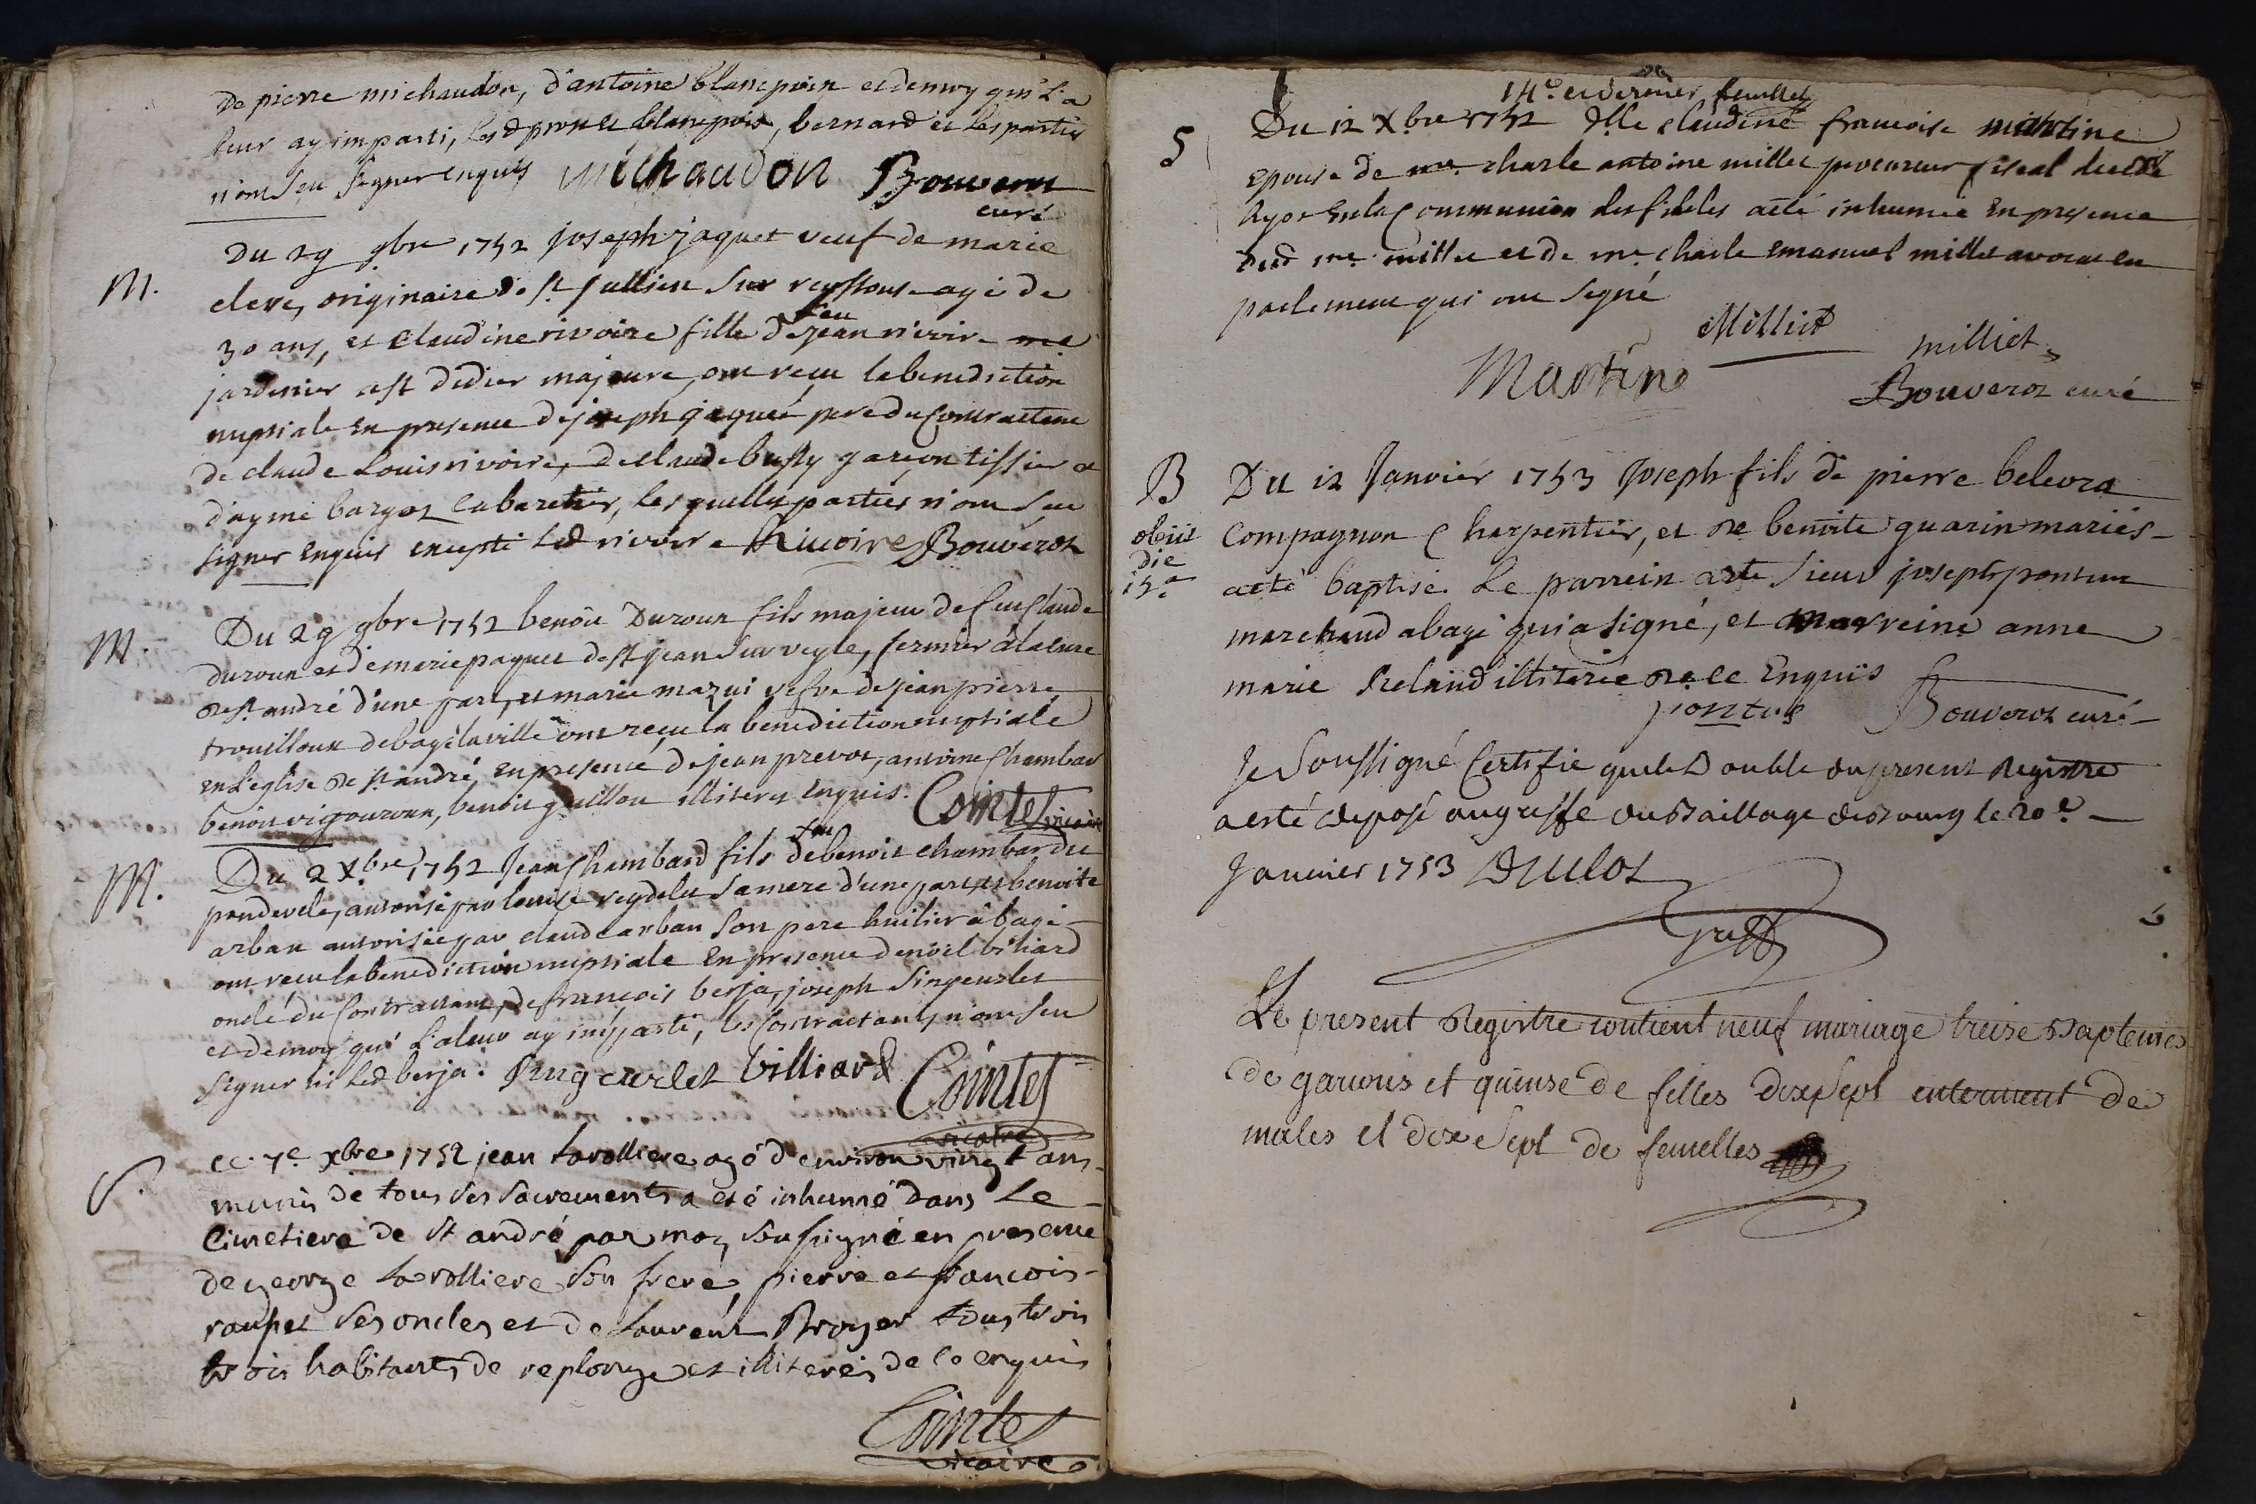 De pierre michaudon, d'antoine blancpoix et de moy qui L'a
leur ay imparti, Lesd. blancpoix, bernard et les parties
n'ont sçu signer enquis michaudon Bouverot
curé
M. Du 29 9bre 1752 joseph jaquet veuf de marie
clere, originaire de st jullien sur reyssouse agé de
30 ans, et Claudine rivoire fille de feu jean rivoire
jardinier a st didier majeure, ont reçu la benediction
nuptiale en presence de joseph jaquet pere du Contractant
de claude Louis rivoire, de claude bussy garçon tissier et
d'aymé bargot cabaretier, les quelles parties n'ont sçu
signer enquis excepté led rivoire Riuoire Bouverot
M. Du 29 9bre 1752 benoit Duroux fils majeur de feu Claude
duroux et de marie paquet de st jean sur veyle, fermier a la cure
de st andré d'une part, et marie mazui vefve de jean pierre
trouilloux de bagé la ville ont reçu la benediction nuptiale
en L'eglise de st andré en presence de jean prevot, antoine Chambar
benoit vigouroux, benoit guillou illiterés enquis. Cointet vicaire
M. Du 2 Xbre 1752 Jean Chambard fils de feu benoit chambard du
pondevele, autorisé par louise reydelet sa mere d'une part, et benoite
arban autorisée par claude arban son pere huilier à bagé
ont reçu la benediction nuptiale en presence de noël biliard
oncle du Contractant, de françois berja, joseph singeurlet
et de moy qui L'a leur ay imparti, les Contractants n'ont sçu
signer ni led berja. Singeurlet billiard Cointet
vicaire
S. Ce 7e xbre 1752 jean Lavolliere agé d'environ vingt ans
munis de tous ses sacrements a eté inhumé dans Le
cimetiere de st andré par moy soussigné en presence
de george Lavolliere son frere, pierre et françois
rauset ses oncles et de Laurent Broyer tous trois
trois habitants de replonge et illiterés de ce enquis
Cointet
vicaire
14e et dernier feuillet
S Du 12 Xbre 1752 Dlle claudine francoise martine
epouse de me charle antoine millet procureur fiscal
bagé en la Communion des fideles a été inhumée en presence
dud me millet et de me charle emanuel millet avocat en
parlement qui ont signé
Milliet
milliet
Martine
Bouverot curé
B Du 12 Janvier 1753 Joseph fils de pierre belevra
obiit Compagnon Charpentier, et de benoite guarin mariés
die
15a a eté baptisé. Le parrein a eté sieur joseph pontus
marchand a bagé qui a signé, et marreine anne
marie Reland illiterée de ce Enquis
pontus Bouverot curé
Je soussigné Certifie que le Double du present Registre
a esté deposé au greffe du Baillage de Bourg le 20e
Janvier 1753 Dulot
Greff
Le present Registre contient neuf mariage treize Bapteme
de garcons et quinse de filles dixsept enterment de
males et dix Sept de femelles